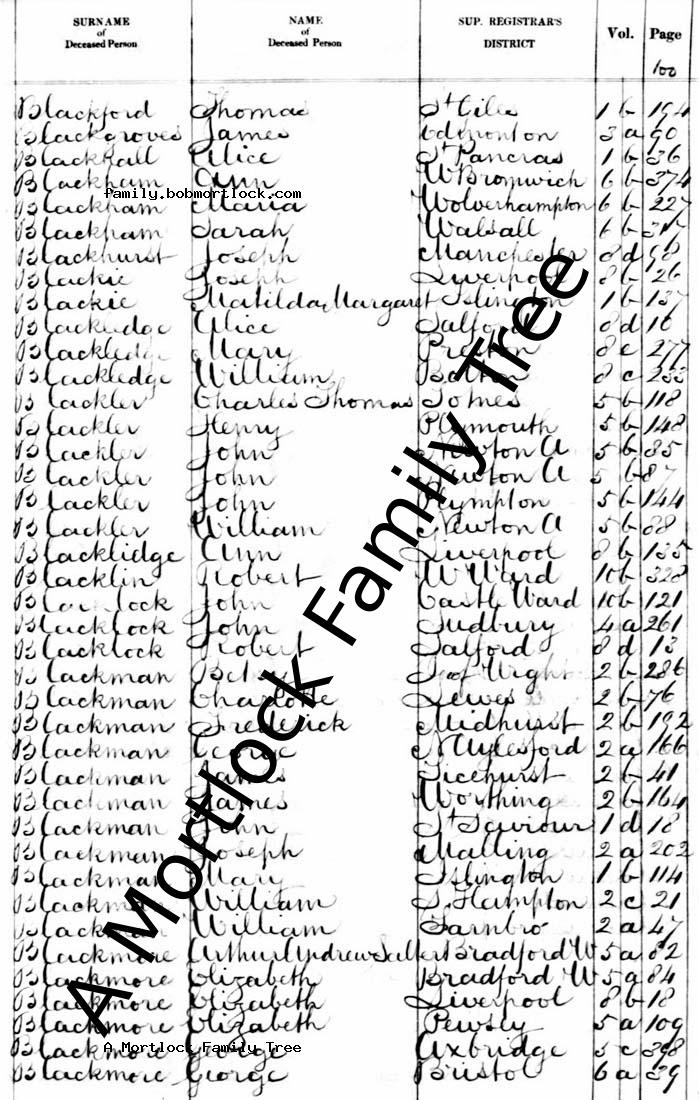 SURNAME of Deceased Person NAME of Deceased Person SUP. REGISTRAR'S DISTRICT Vol. Page
100
Blackford Thomas St Giles 1 b 194
Blackgroves James Edmonton 3 a 90
Blackhall Alice St Pancras 1 b 36
Blackham Ann W Bromwich 6 b 374
family.bobmortlock.com
Blackham Maria Wolverhampton 6 b 227
Blackham Sarah Walsall 6 b
Blackhurst Joseph Manchester 8 d 98
Blackie Joseph Liverpool 8 b 26
Blackie Matilda Margaret Islington 1 b 137
Blackledge Alice Salford 8 d 16
Blackledge Mary Preston 8 e 277
Blackledge William Bolton 8 c 233
Blackler Charles Thomas Totnes 5 b 118
Blackler Henry Plymouth 5 b 148
Blackler John Newton A 5 b 85
Blackler John Newton A 5 b 87
Blackler John Plympton 5 b 144
Blackler William Newton A 5 b 88
Blacklidge Ann Liverpool 8 b 135
Blacklin Robert W Ward 10 b 328
Blacklock John Castle Ward 10 b 121
Blacklock John Sudbury 4 a 261
Blacklock Robert Salford 8 d 13
Blackman Betsy I of Wight 2 b 286
Blackman Charlotte Lewes 2 b 76
Blackman Frederick Midhurst 2 b 192
Blackman George N Aylesford 2 a 166
Blackman James Ticehurst 2 b 41
Blackman James Worthing 2 b 164
Blackman John St Saviour 1 d 18
Blackman Joseph Malling 2 a 202
Blackman Mary Islington 1 b 114
Blackman William S. Hampton 2 c 21
Blackman William Farnbro 2 a 47
Blackmore Arthur Andrew Salter Bradford W 5 a 82
Blackmore Elizabeth Bradford W 5 a 84
Blackmore Elizabeth Liverpool 8 b 18
Blackmore Elizabeth Pewsly 5 a 109
Blackmore George Axbridge 5 c 398
A Mortlock Family Tree
Blackmore George Bristol 6 a 39
A Mortlock Family Tree